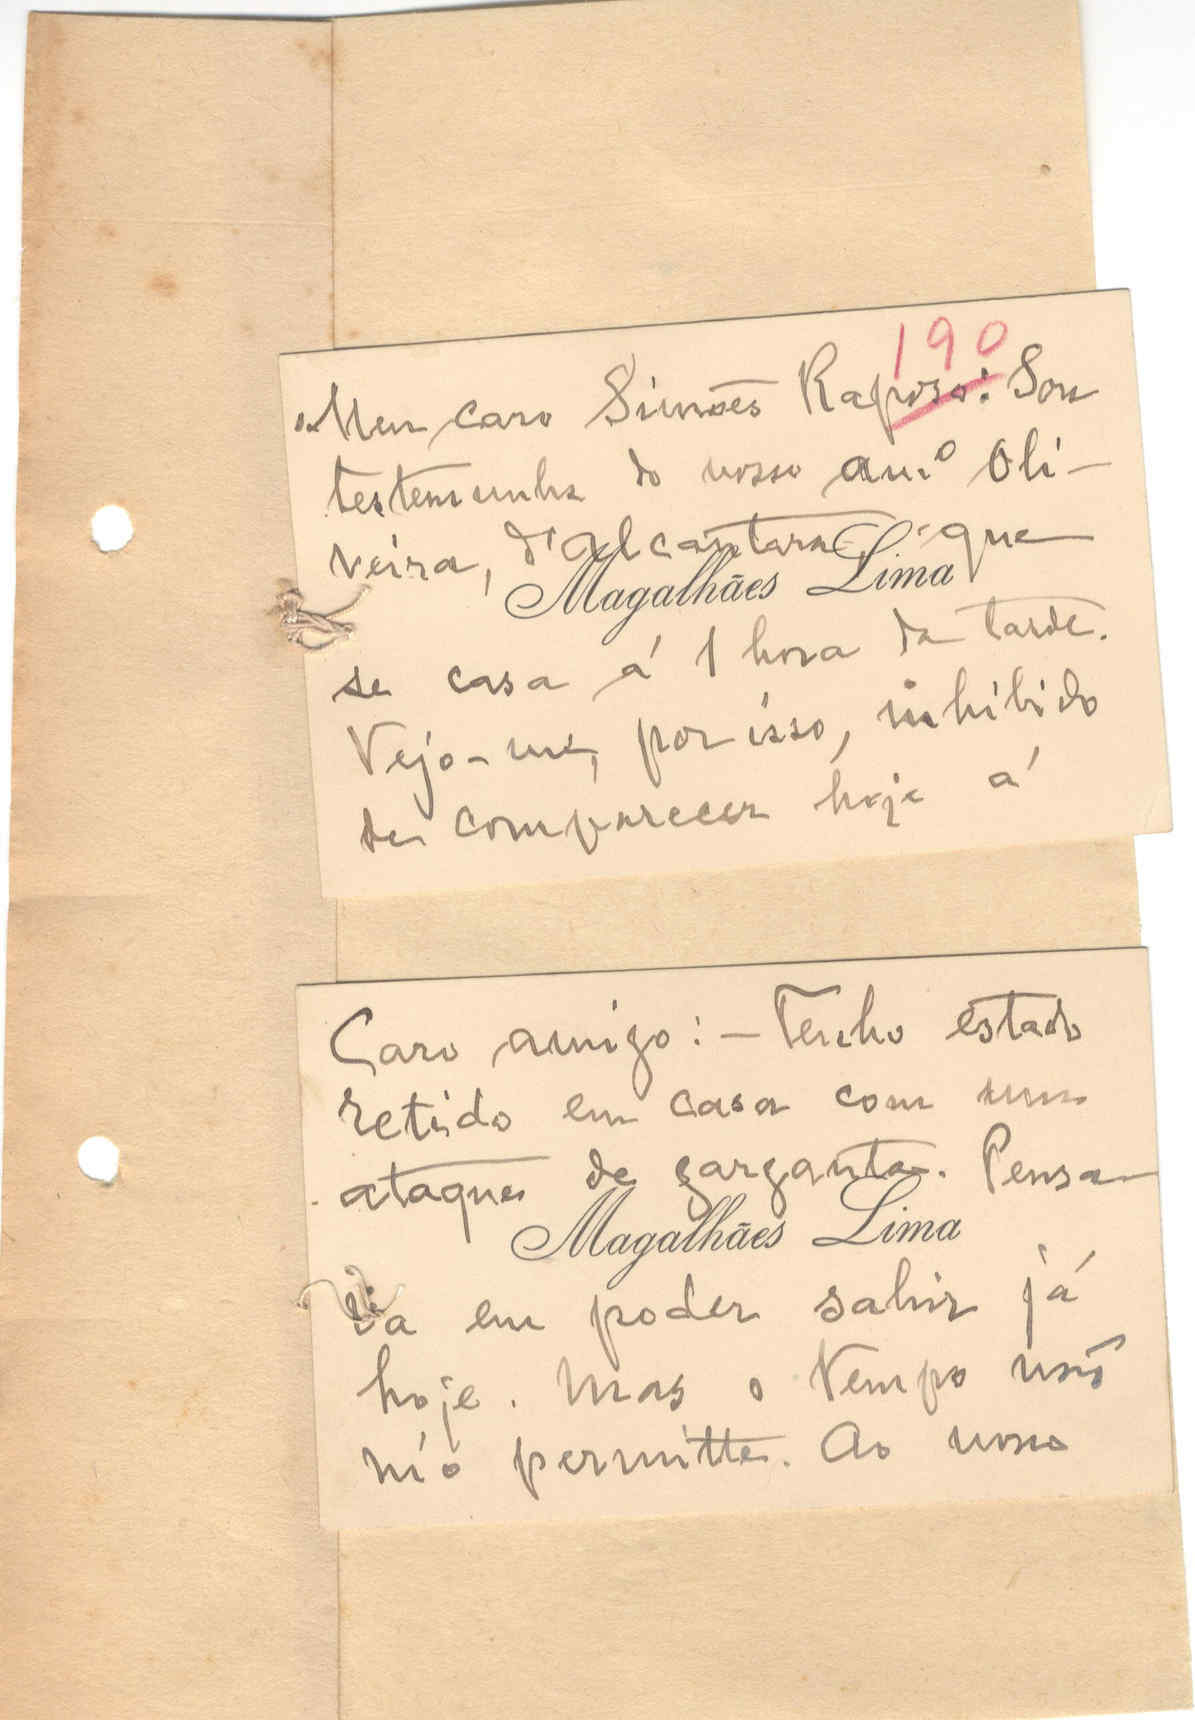 190
Meu caro Simões Raposo: Sou
testemunha do nosso am.o Oli-
veira, d'Alcantara, que
Magalhães Lima
se casa á 1 hora da tarde.
Vejo-me, por isso, inhibido
de comparecer hoje á
Caro amigo: - Tenho estado
retido em casa com um
ataque de garganta. Pensa-
Magalhães Lima
va em poder sahir já
hoje. Mas o tempo não
m'o permitte. Ao nosso